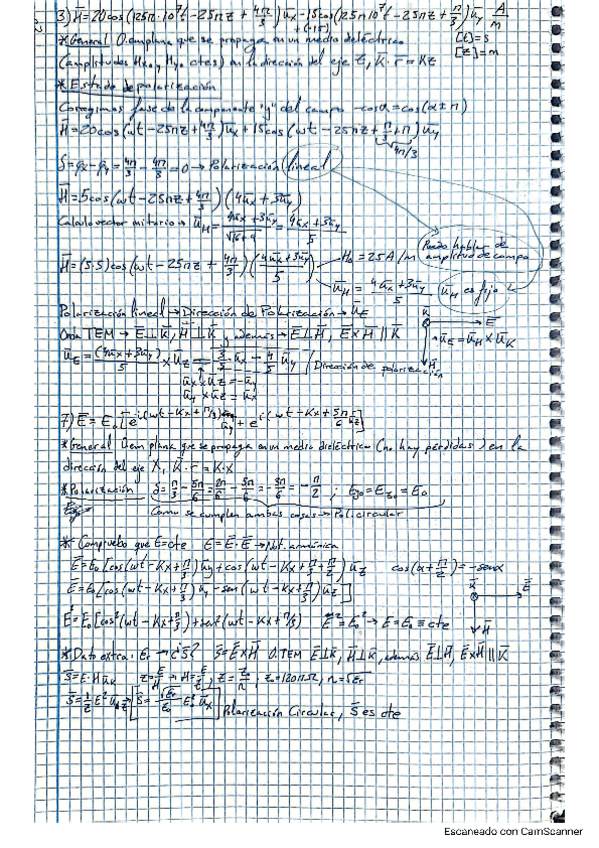 3) H̄=20cos(125π·10⁷t-25πz+4π/3)ūx-15cos(125π10⁷t-25πz+π/3)ūy A/m
+(-15) [t]=s
*General O. em plana que se propaga en un medio dieléctrico [z]=m
(amplitudes Hxo y Hyo ctes) en la dirección del eje z, K̄·r̄=Kz
*Estado de polarización
Corregimos fase de la componente "y" del campo -cosα=cos(α±π)
H̄=20cos(wt-25πz+4π/3)ūx+15cos(wt-25πz+π/3+π)ūy
4π/3
δ=φx-φy=4π/3-4π/3=0→Polarización lineal
H̄=5cos(wt-25πz+4π/3)(4ūx+3ūy)
Calculo vector unitario→ūH=4ūx+3ūy/√16+9=4ūx+3ūy/5
Puedo hablar de amplitud de campo
H̄=(5·5)cos(wt-25πz+4π/3)(4ūx+3ūy/5) H₀=25A/m
ūH=4ūx+3ūy/5 ūH es fijo
Polarización lineal→Dirección de Polarización→ūE
K̄ Ē
Onda TEM→Ē⊥K̄, H̄⊥K̄ y además→Ē⊥H̄, ĒxH̄∥K̄
ūE=ūHxūK
H̄
ūE=(4ūx+3ūy)/5 xūz=3/5ūx-4/5ūy Dirección de polarización
ūxxūz=-ūy
ūyxūz=ūx
7) Ē=E₀[e^i(wt-Kx+π/3)ūy+e^i(wt-Kx+5π/6)ūz]
*General O. em plana que se propaga en un medio dieléctrico (no hay pérdidas) en la
dirección del eje X, K̄·r̄=K·x
*Polarización δ=π/3-5π/6=2π/6-5π/6=-3π/6=-π/2; Eyo=Ezo=E₀
Como se cumplen ambas cosas→Pol. circular
*Compruebo que E=cte E²=Ē·Ē→Not. armónica
Ē=E₀[cos(wt-Kx+π/3)ūy+cos(wt-Kx+π/3+π/2)ūz cos(α+π/2)=-senα
Ē=E₀[cos(wt-Kx+π/3)ūy-sen(wt-Kx+π/3)ūz]
K̄ Ē
H̄
E²=E₀²[cos²(wt-Kx+π/3)+sen²(wt-Kx+π/3) E²=E₀²→E=E₀≡cte
*Dato extra: εr→c̄S? S̄=ĒxH̄ O.TEM Ē⊥K̄, H̄⊥K̄, además Ē⊥H̄, ĒxH̄∥K̄
S̄=E·HūK z=E/H→H=E/z; z=z₀/n; z₀=120πΩ, n=√εr
Polarización Circular, S̄ es cte
Escaneado con CamScanner